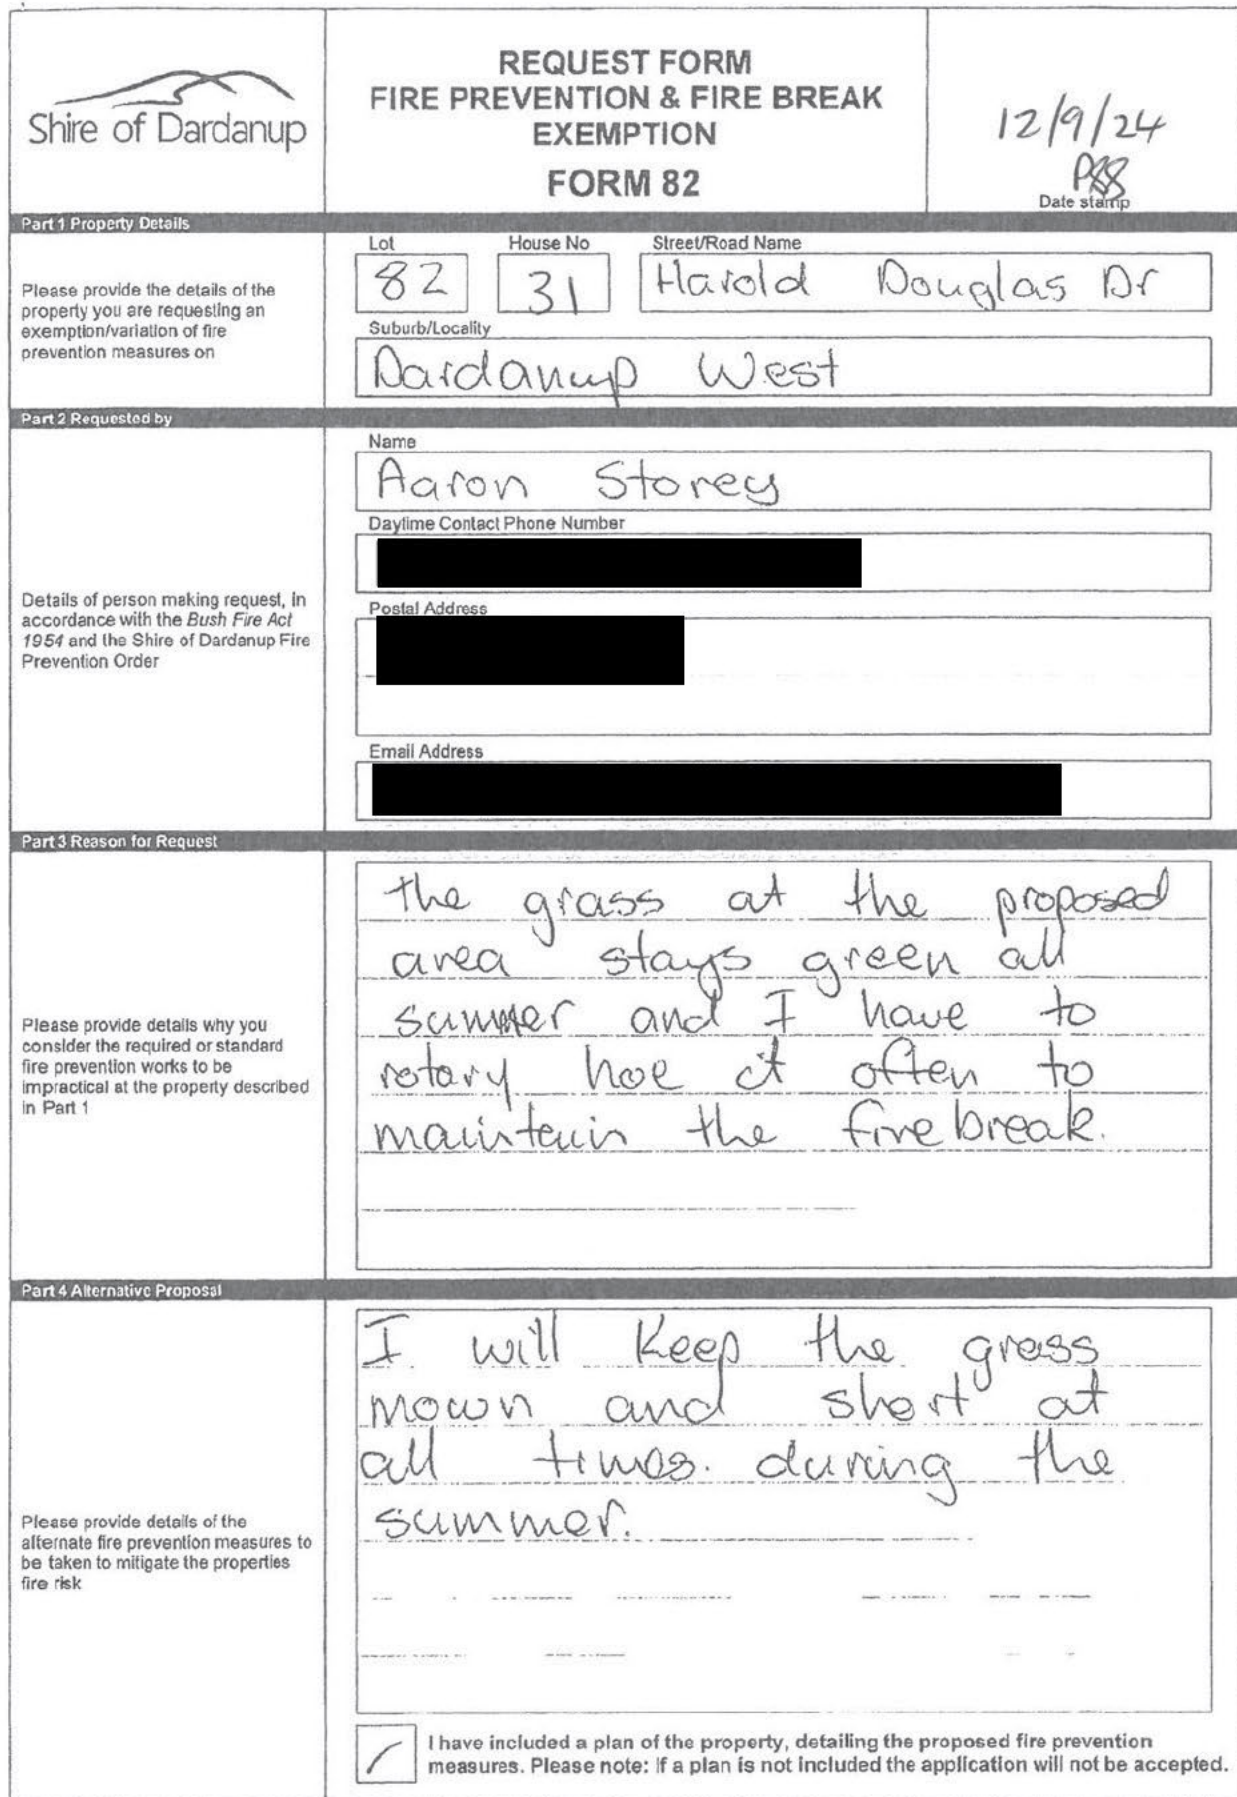 Shire of Dardanup
REQUEST FORM
FIRE PREVENTION & FIRE BREAK
EXEMPTION
FORM 82
12/9/24
Date stamp
Part 1 Property Details
Please provide the details of the
property you are requesting an
exemption/variation of fire
prevention measures on
Lot
House No
Street/Road Name
82
31
Harold Douglas Dr
Suburb/Locality
Dardanup West
Part 2 Requested by
Details of person making request, in
accordance with the Bush Fire Act
1954 and the Shire of Dardanup Fire
Prevention Order
Name
Aaron Storey
Daytime Contact Phone Number
Postal Address
Email Address
Part 3 Reason for Request
Please provide details why you
consider the required or standard
fire prevention works to be
impractical at the property described
in Part 1
the grass at the proposed
area stays green all
summer and I have to
rotary hoe it often to
maintain the firebreak.
Part 4 Alternative Proposal
Please provide details of the
alternate fire prevention measures to
be taken to mitigate the properties
fire risk
I will keep the grass
mown and short at
all times. during the
summer.
I have included a plan of the property, detailing the proposed fire prevention
measures. Please note: if a plan is not included the application will not be accepted.